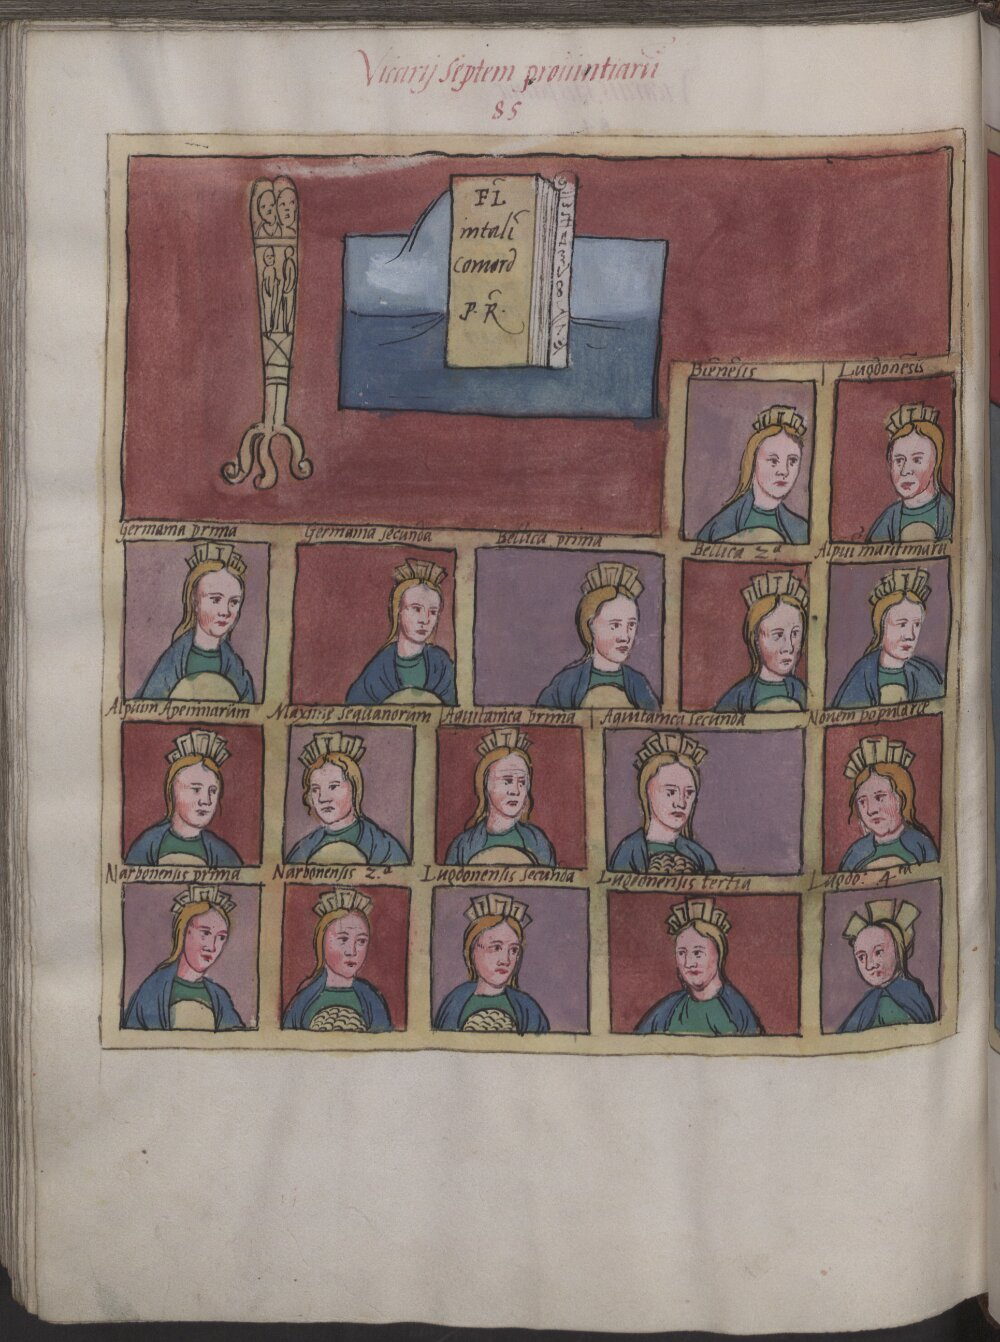 Vicarij septem provintiarū
85
FL̄
intalī
comord̄
P. R̄.
Biēnēsis
Lugdonēsis
Germania prima
Germania secunda
Bellica prima
Bellica 2ᵃ
Alpiū maritimarū
Alpium Apenniarum
Maxime sequanorum
Aquitanica prima
Aquitanica secunda
Novem populare
Narbonensis prima
Narbonensis 2.ᵃ
Lugdonensis secunda
Lugdonensis tertia
Lugdo. 4ᵗᵃ